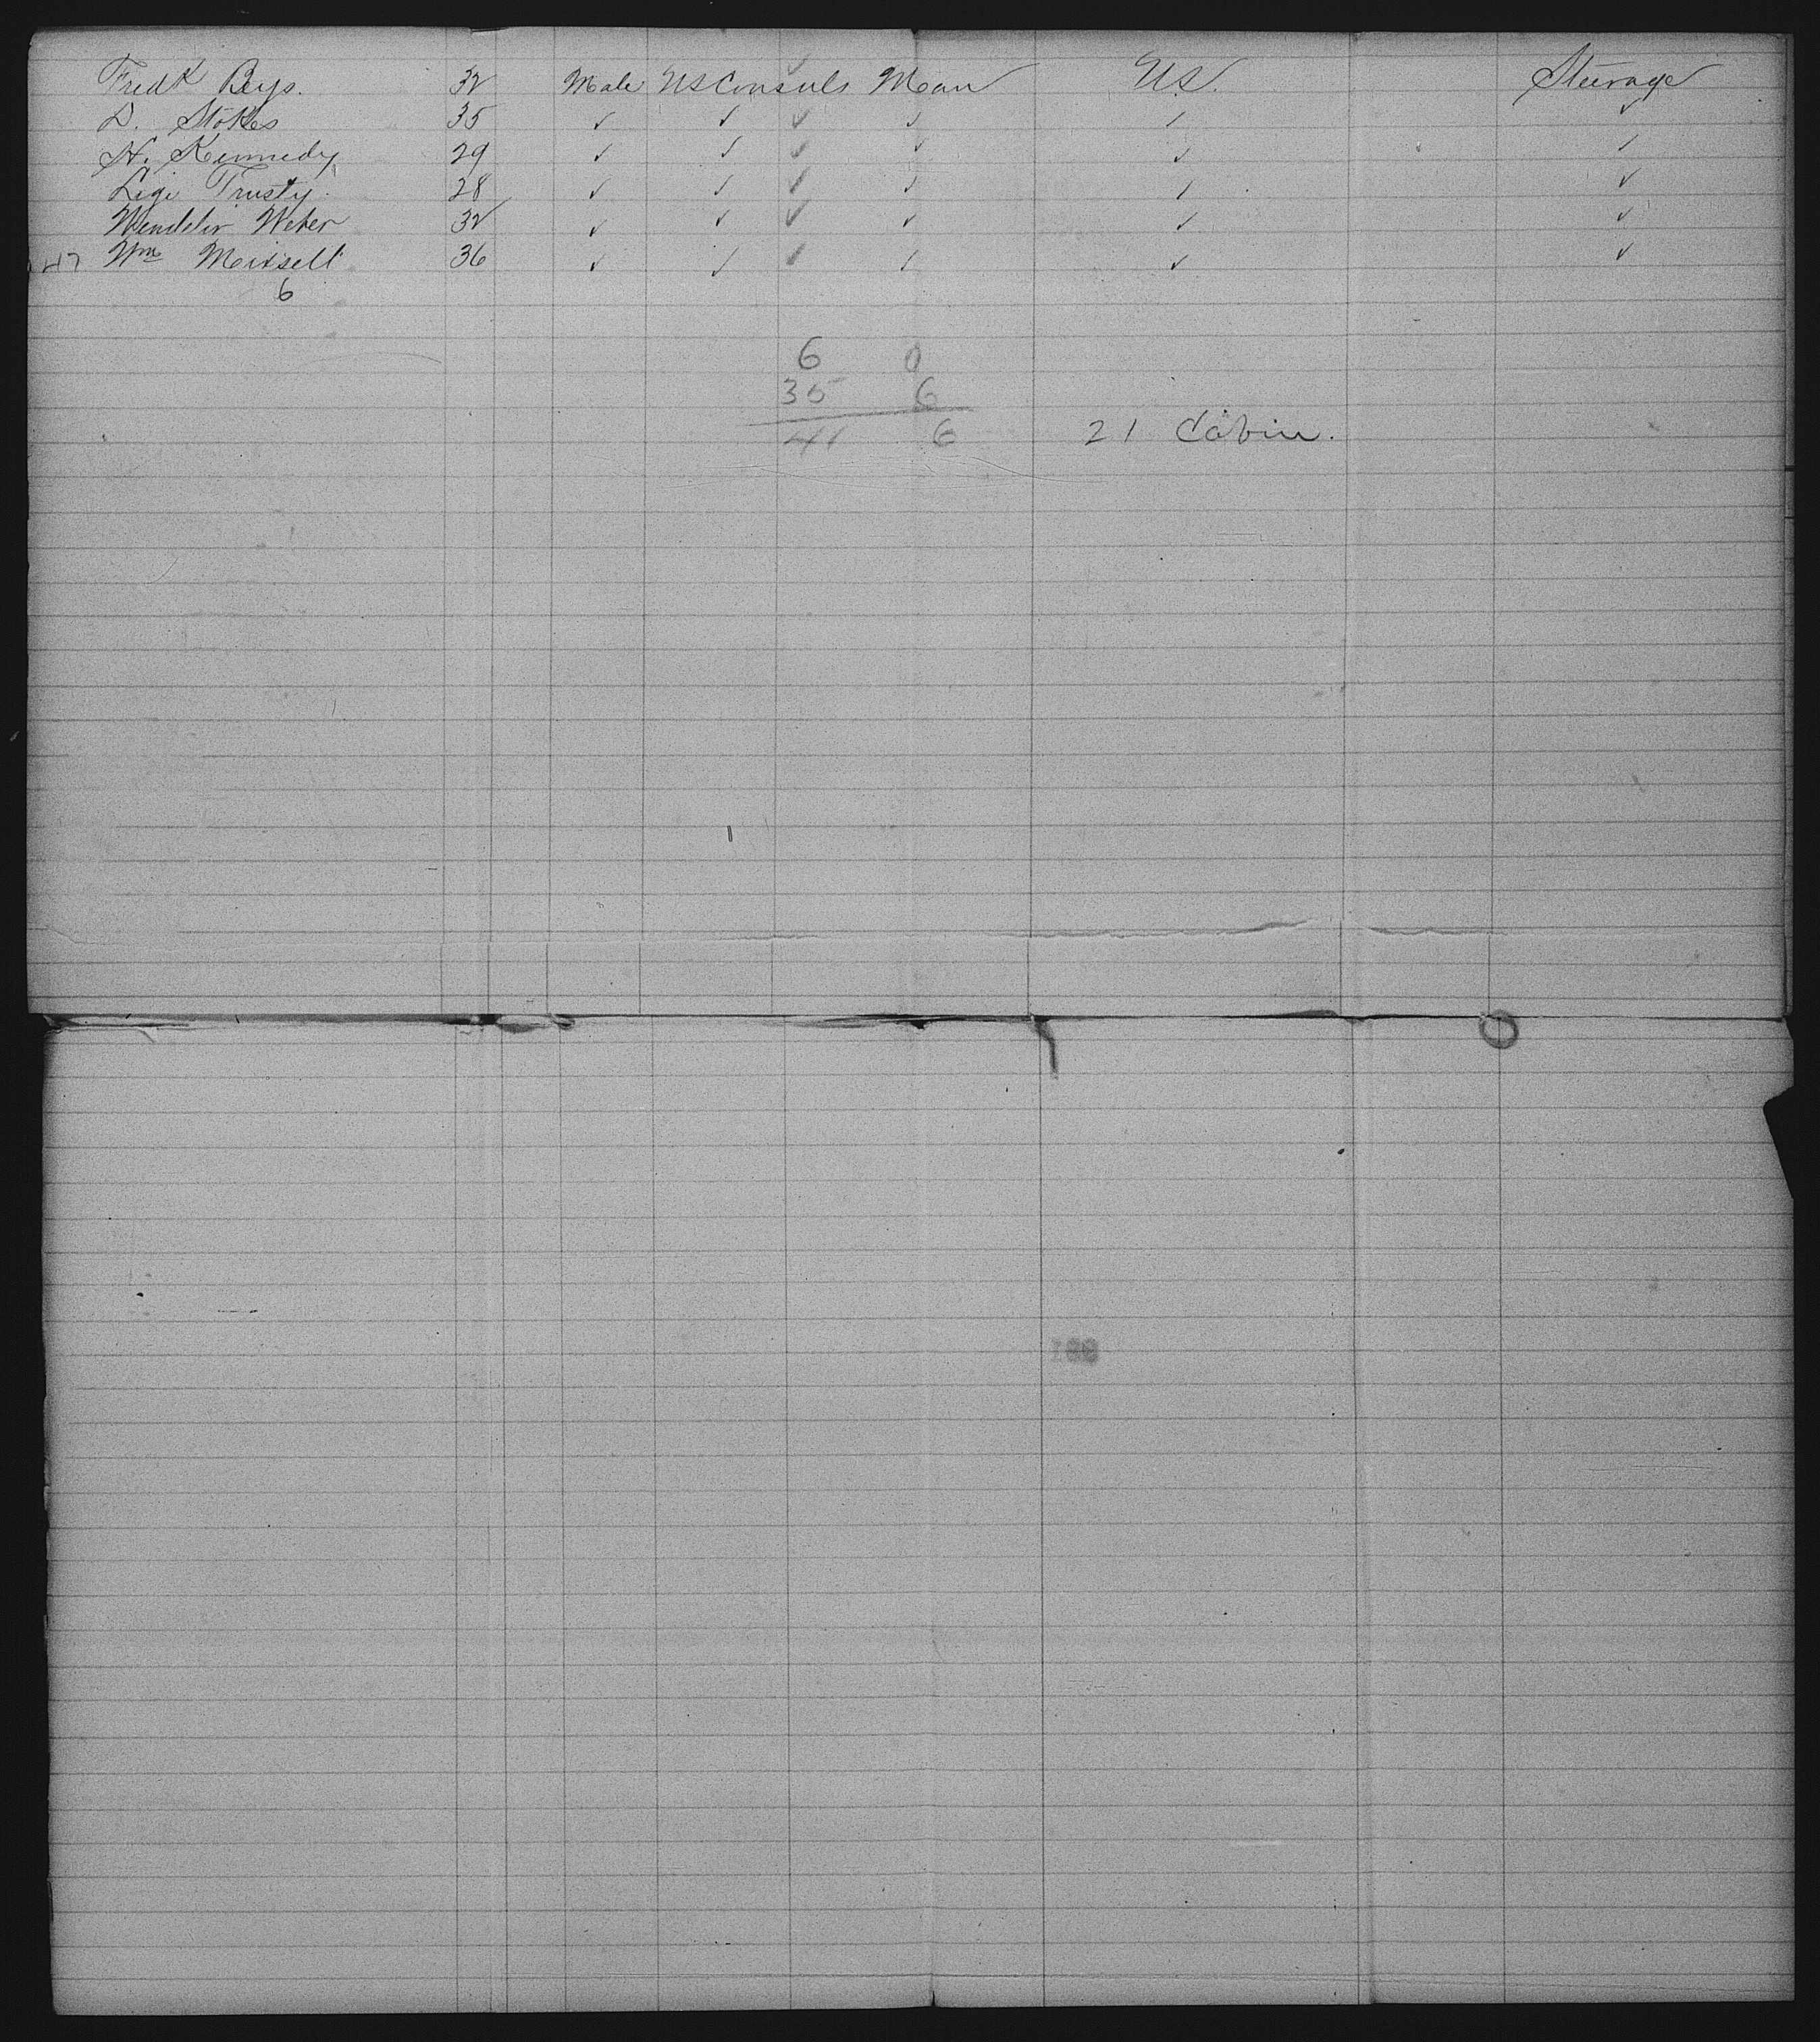 Fredk Reys. 32 Male US Consuls Man US. Steerage
D. Stokes 35 ✓ ✓ ✓ ✓ ✓ ✓
H. Kennedy 29 ✓ ✓ ✓ ✓ ✓ ✓
Ligi Trusty. 28 ✓ ✓ ✓ ✓ ✓ ✓
Wendelin Weber 32 ✓ ✓ ✓ ✓ ✓ ✓
47 Wm 36 ✓ ✓ ✓ ✓ ✓ ✓
6
6 0
35 6
41 6 21 Cabin.